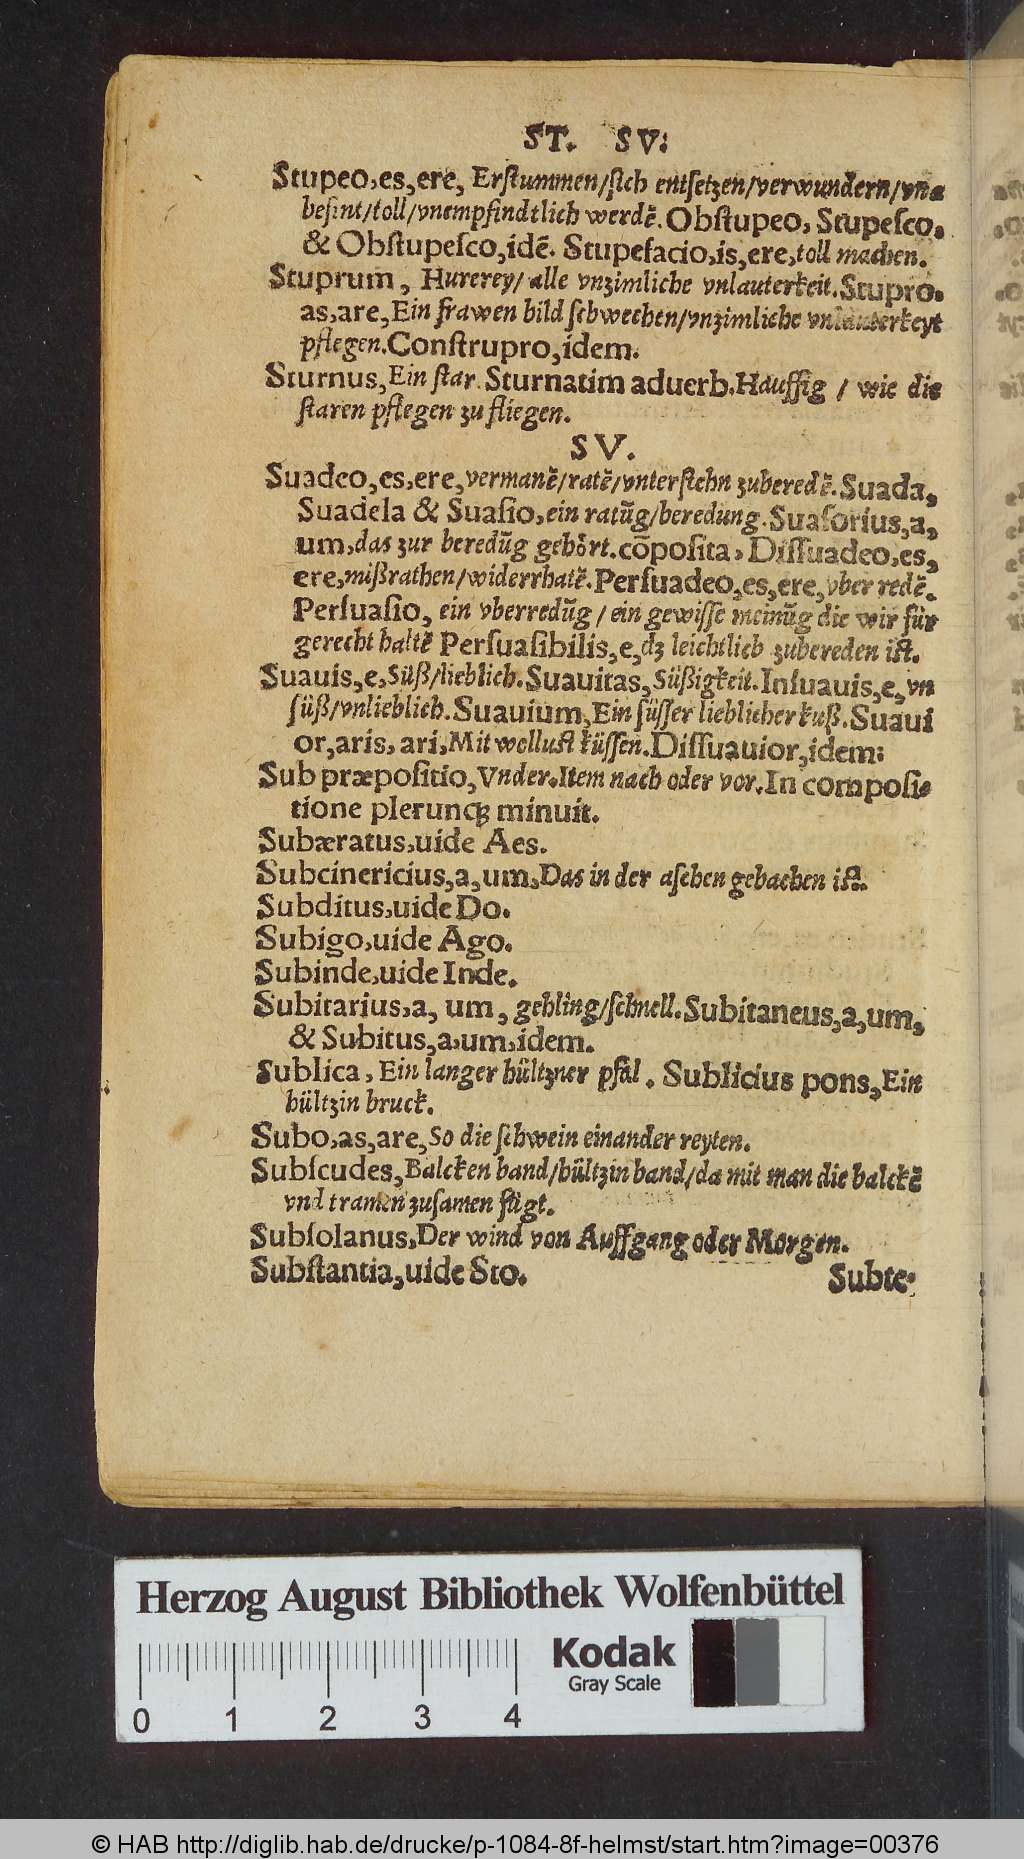 ST. SV:
Stupeo,es,ere, Erſtummen/ſich entſetzen/verwundern/vna
beſint/toll/vnempfindtlich werdẽ. Obſtupeo, Stupeſco.
& Obſtupeſco,idẽ. Stupefacio,is,ere,toll machen.
Stuprum, Hurerey/ alle vnzimliche vnlauterkeit. Stupro.
as,are, Ein frawen bild ſchwechen/vnzimliche vnlauterkeyt
pflegen. Conſtrupro,idem.
Sturnus, Ein ſtar. Sturnatim aduerb. Hauffig / wie die
ſtaren pflegen zu fliegen.
SV.
Suadeo,es,ere, vermanẽ/ratẽ/vnterſtehn zuberedẽ. Suada,
Suadela & Suaſio, ein ratũg/beredung. Suaſorius,a,
um, das zur beredũg gehört. cõpoſita, Diſſuadeo,es,
ere, mißrathen/widerrhatẽ. Perſuadeo,es,ere, vber redẽ.
Perſuaſio, ein vberredũg / ein gewiſſe meinũg die wir für
gerecht haltẽ Perſuaſibilis,e, dz leichtlich zubereden iſt.
Suauis,e, Süß/lieblich. Suauitas, Süßigkeit. Inſuauis,e, vn
ſüß/vnlieblich. Suauium, Ein ſüſſer lieblicher kuß. Suaui
or,aris, ari, Mit wolluſt küſſen. Diſſuauior,idem:
Sub præpoſitio, Vnder. Item nach oder vor. In compoſi-
tione plerunqꝫ minuit.
Subæratus,uide Aes.
Subcinericius,a,um, Das in der aſchen gebachen iſt.
Subditus,uide Do.
Subigo,uide Ago.
Subinde,uide Inde.
Subitarius,a, um, gehling/ſchnell. Subitaneus,a,um,
& Subitus,a,um,idem.
Sublica, Ein langer hültzner pfål. Sublicius pons, Ein
hültzin bruck.
Subo,as,are, So die ſchwein einander reyten.
Subſcudes, Balcken band/hültzin band/da mit man die balckẽ
vnd tramen zuſamen fügt.
Subſolanus, Der wind von Auffgang oder Morgen.
Subſtantia,uide Sto.
Subte:
Herzog August Bibliothek Wolfenbüttel
Kodak
Gray Scale
0 1 2 3 4
© HAB http://diglib.hab.de/drucke/p-1084-8f-helmst/start.htm?image=00376